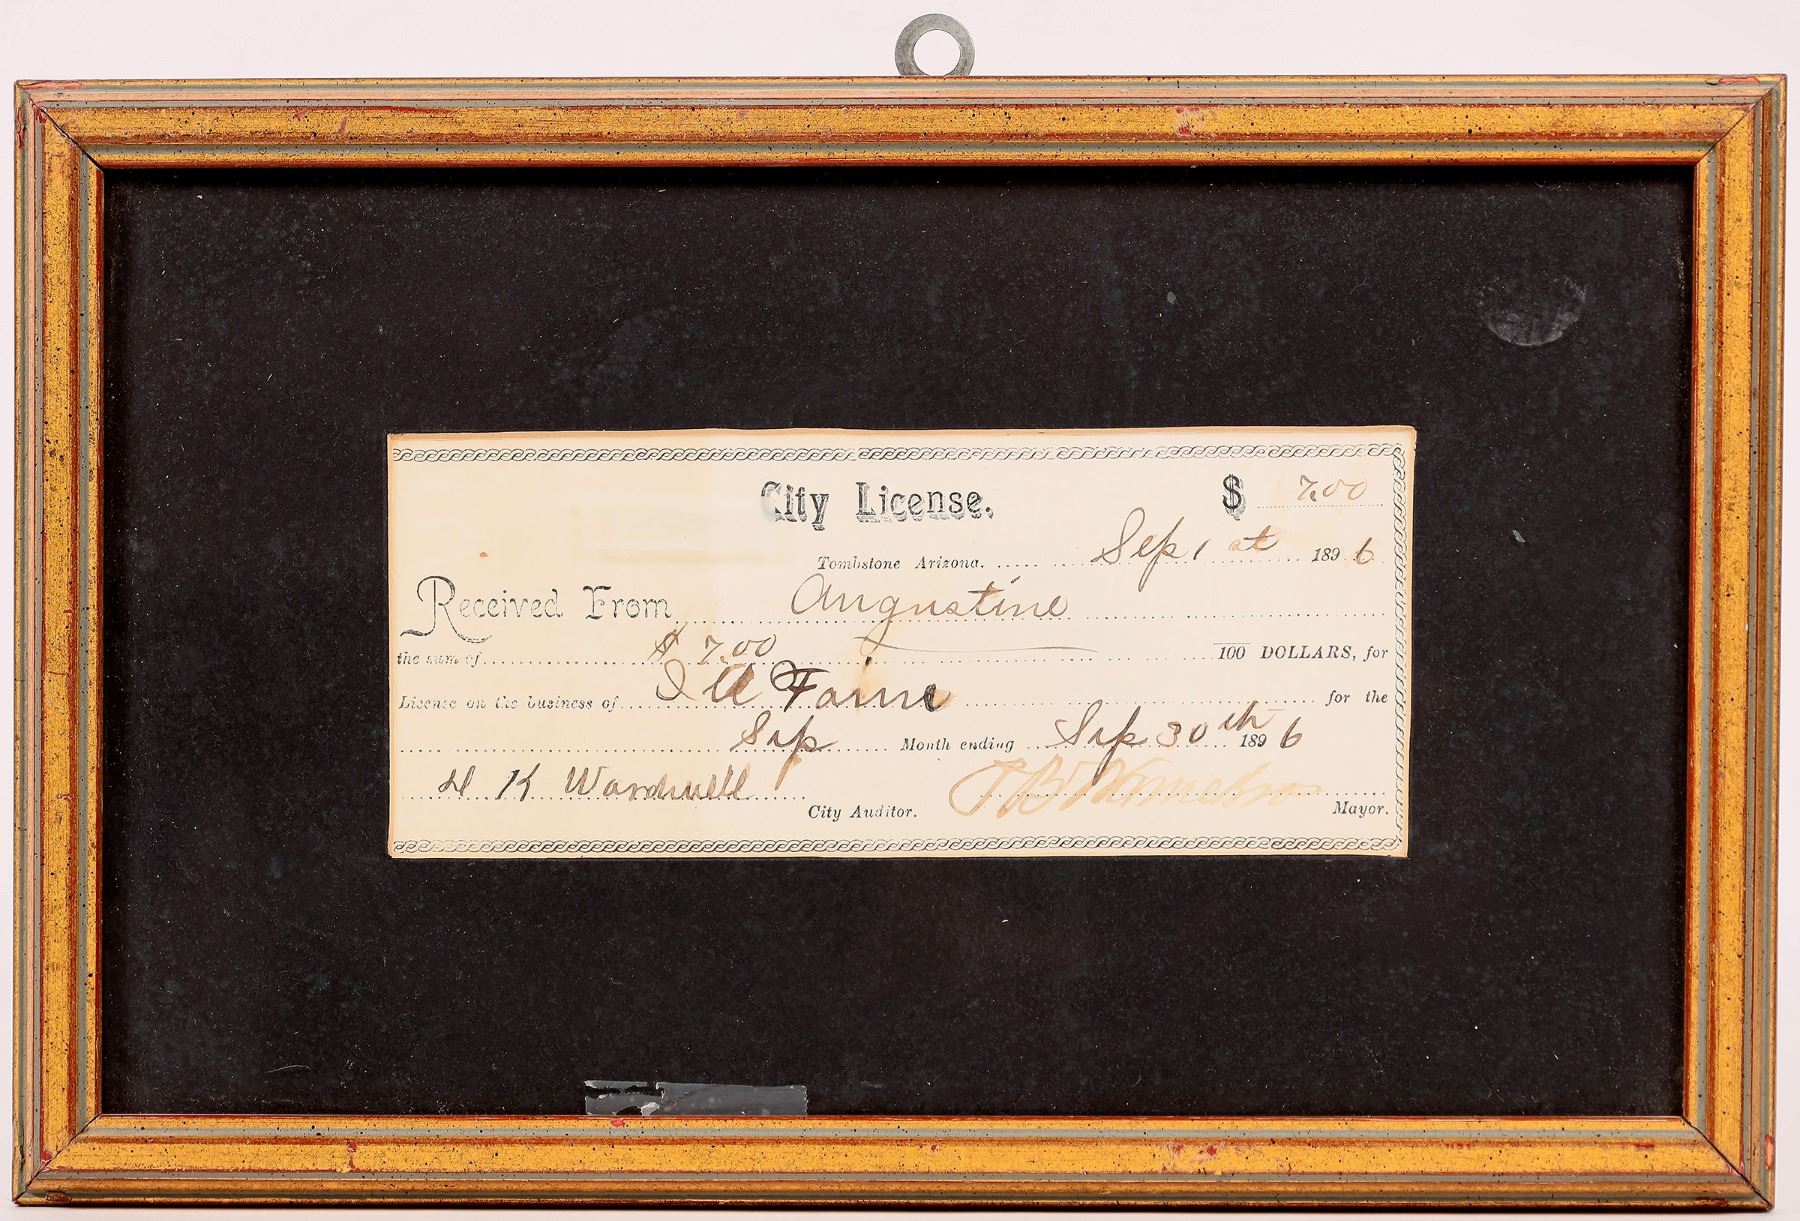 City License. $ 7.00
Tombstone Arizona. Sep 1 st 1896
Received From Augustine
the sum of $ 7.00 100 DOLLARS, for
License on the business of for the
Sep Month ending Sep 30th 1896
K Wardwell City Auditor. Mayor.